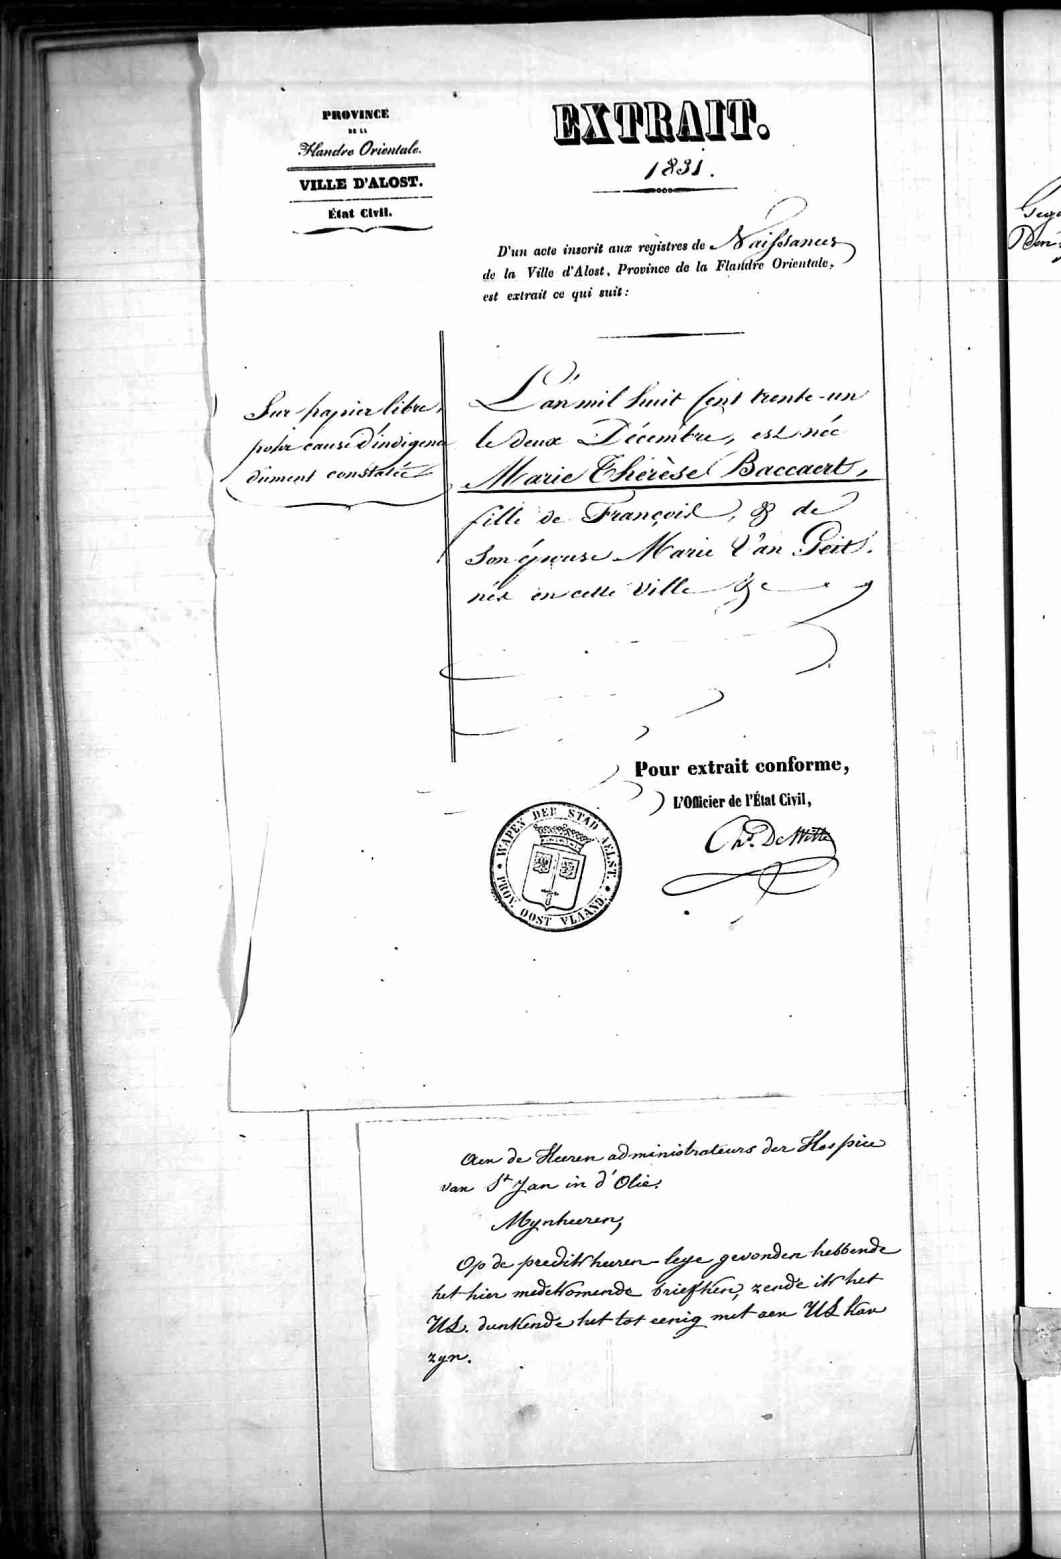 PROVINCE
DE LA
Flandre Orientale.
VILLE D'ALOST.
État Civil.
EXTRAIT.
1831.
D'un acte inscrit aux registres de Naissances
de la Ville d'Alost, Province de la Flandre Orientale,
est extrait ce qui suit:
Sur papier libre,
pour cause d'indigence
dument constatée
L'an mil huit cent trente-un
le deux Décembre, est née
Marie Thérèse Baccaert,
fille de François, & de
son épouse Marie Van Geit
nés en cette Ville &c
Pour extrait conforme,
L'Officier de l'État Civil,
Chs. De Witte
WAPEN DER STAD AELST.
PROV. OOST VLAAND.
Aen de Heeren administrateurs der Hospice
van St Jan in d'Olie.
Mynheeren,
Op de predikheeren-leye gevonden hebbende
het hier medekomende briefken, zende ik het
UL. dunkende het tot eenig met aen UL kan
zyn.